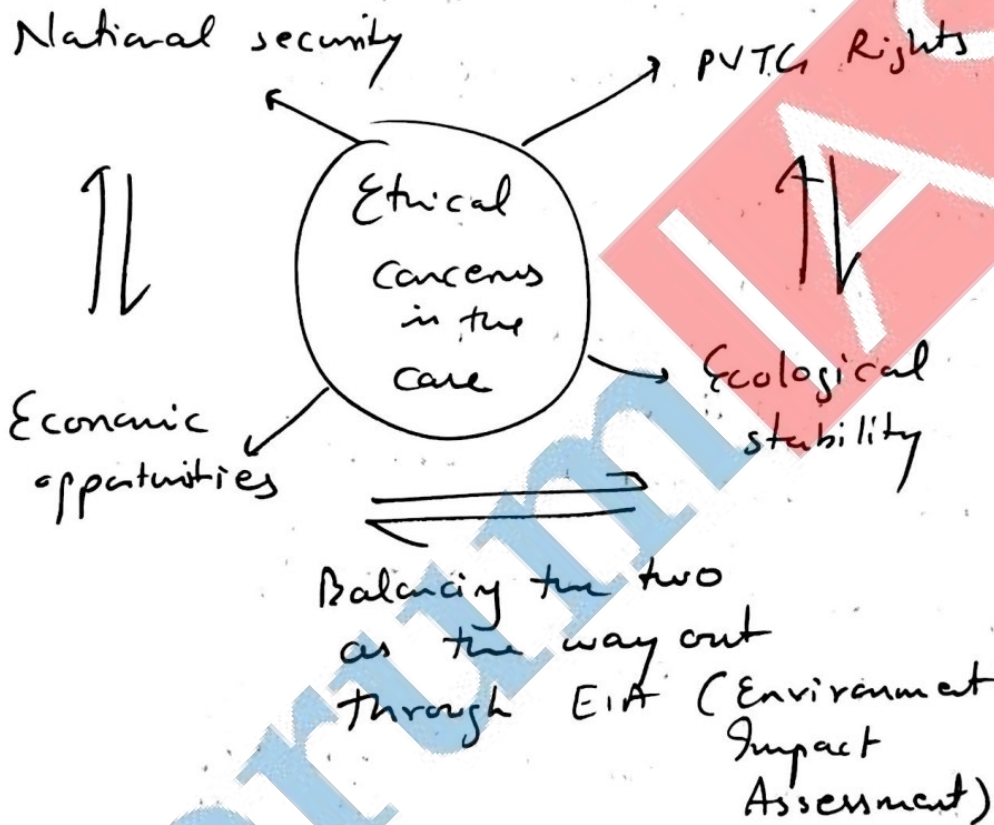 National security
PVTG Rights
Ethical
concerns
in the
case
Economic
opportunities
Ecological
stability
Balancing the two
as the way out
through EIA (Environment
Impact
Assessment)
IAS
orum